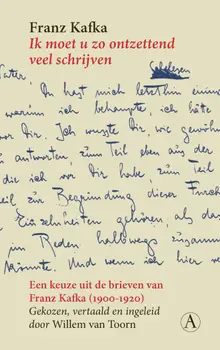 Franz Kafka
Ik moet u zo ontzettend
veel schrijven
Schelesen
Vater,
Du hast mich letzthin einmal
warum ich behaupte, ich hätte
vor Dir. Ich wusste Dir, wie gewöhn
antworten, zum Teil eben aus der
die ich vor Dir habe, zum Teil
zur Begründung dieser Furch
Einzelnheiten gehören, als da
im Reden halbwegs zusammen
könnte. Und wenn ich hier
Een keuze uit de brieven van
Franz Kafka (1900-1920)
Gekozen, vertaald en ingeleid
door Willem van Toorn
A